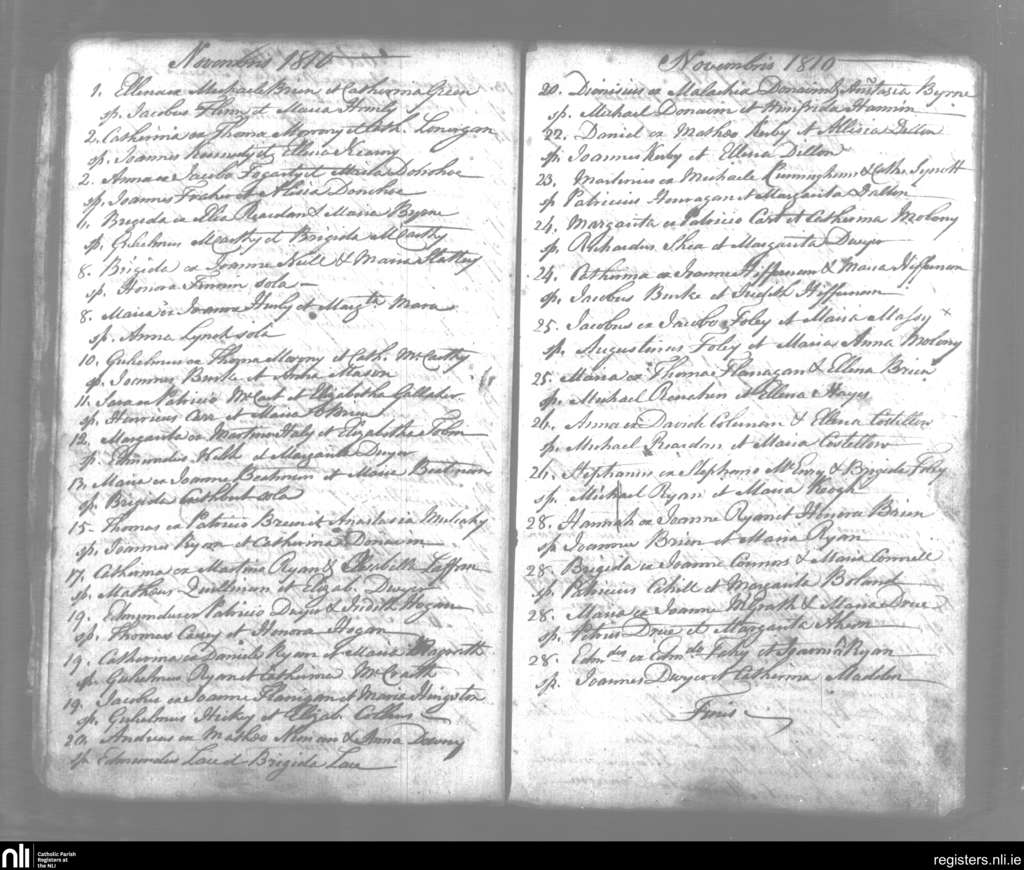 Novembris 1810
1. Ellena ex Michaele Brien et Catherina Green
sp. Jacobus Flinn et Maria Hurly
2. Catherina ex Thoma Morony et Cath. Lonergan
sp. Joannes Kennedy et Ellena Kearny
2. Anna ex Jacobo Fogarty et Maria Donohoe
sp. Joannes et Alisia Donohoe
6. Brigida ex Reardan & Maria Byrne
sp. Gulielmus McCarthy et Brigida McCarthy
8. Brigida ex Joanne Neill & Maria Slattery
sp. Honora sola
8. Maria ex Joanne Hurly et Margta Mara
sp. Anna Lynch sola
10. Gulielmus ex Thoma Morony et Cath. McCarthy
sp. Joannes Burke et Anna Mason
11. Sara ex Patricio McCart et Elizabetha Gallaher
sp. Henricus Carr et Maria OBrien
12. Margarita ex Martino Haly et Elizabetha
sp. Edmundus Webb et Margarita Dwyer
13. Maria ex Joanne et Maria
sp. Brigida Cuthbert sola
15. Thomas ex Patricio Breen et Anastasia Mulcahy
sp. Joannes Ryan et Catherina Donavan
17. Catherina ex Martino Ryan & Elizabeth Laffan
sp. Matheus Quillinan et Elizab. Dwyer
19. Edmundus ex Patricio Dwyer & Judith Hogan
sp. Thomas Casey et Honora Hogan
19. Catherina ex Daniele Ryan et Maria
sp. Gulielmus Ryan et Catherina McGrath
19. Jacobus ex Joanne Flanigan et Maria Hingston
sp. Gulielmus Hickey et Elizab. Collins
20. Andreas ex Matheo Noonan & Anna Downy
sp. Edmundus Lace & Brigida Lace
Novembris 1810
20. Dionisius ex Malachia Donavan & Anastasia Byrne
sp. Michael Donavan et Winifrida Hannin
22. Daniel ex Matheo Kirby et Allisia Dillon
sp. Joannes Kirby et Ellena Dillon
23. Martinus ex Michaele Cunningham & Cathe. Synott
sp. Patricius Houragan et Margarita Dalton
24. Margarita ex Patricio Cart et Catherina Molony
sp. Richardus Shea et Margarita Dwyer
24. Catherina ex Joanne Heffernan & Maria Heffernan
sp. Jacobus Burke et Judith Heffernan
25. Jacobus ex Jacobo Foley et Maria Massy
sp. Augustinus Foley et Maria Anna Molony
25. Maria ex Thoma Flanagan & Ellena Brien
sp. Michael et Ellena Hayes
26. Anna ex Davide Coleman & Ellena Costellow
sp. Michael Reardon et Maria Costellow
26. Stephanus ex Stephano McEvoy & Brigida Foley
sp. Michael Ryan et Maria Keogh
28. Hannah ex Joanne Ryan et Honora Brien
sp. Joannes Brien et Maria Ryan
28. Brigida ex Joanne Connors & Maria Connell
sp. Patricius Cahill et Margarita Boland
28. Maria ex Joanne McGrath & Maria Drue
sp. Petrus Drue et Margarita Ahern
28. Edmdus ex Edmdo Fahy et Joanna Ryan
sp. Joannes Dwyer et Catherina Madden
Finis
nli
Catholic Parish
Registers at
the NLI
registers.nli.ie